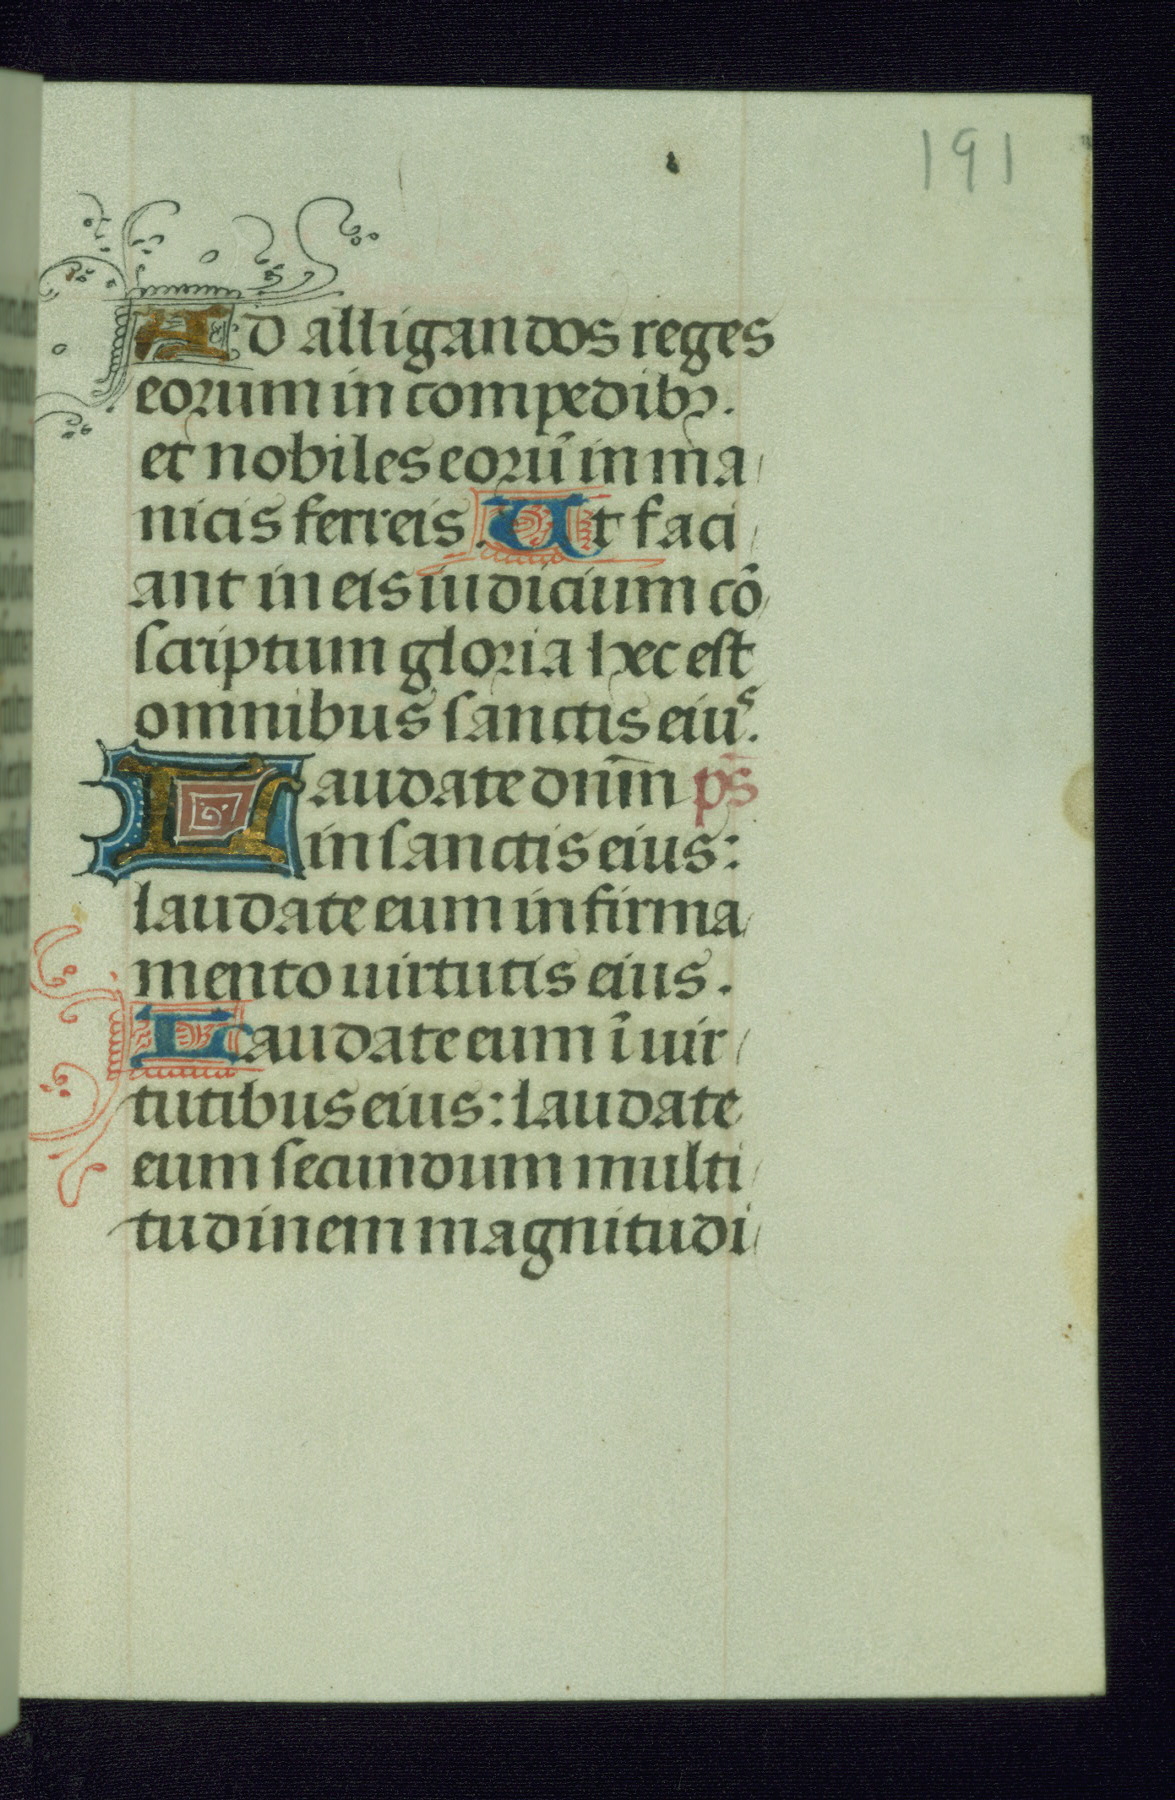 191
Ad alligandos reges
eorum in compedibꝫ.
et nobiles eorũ in ma
nicis ferreis. Ut faci
ant in eis iudicium cõ
scriptum gloria hec est
omnibus sanctis eiuˢ.
Laudate dñm pš
in sanctis eius:
laudate eum in firma
mento uirtutis eius.
Laudate eum ĩ uir
tutibus eius: laudate
eum secundum multi
tudinem magnitudi